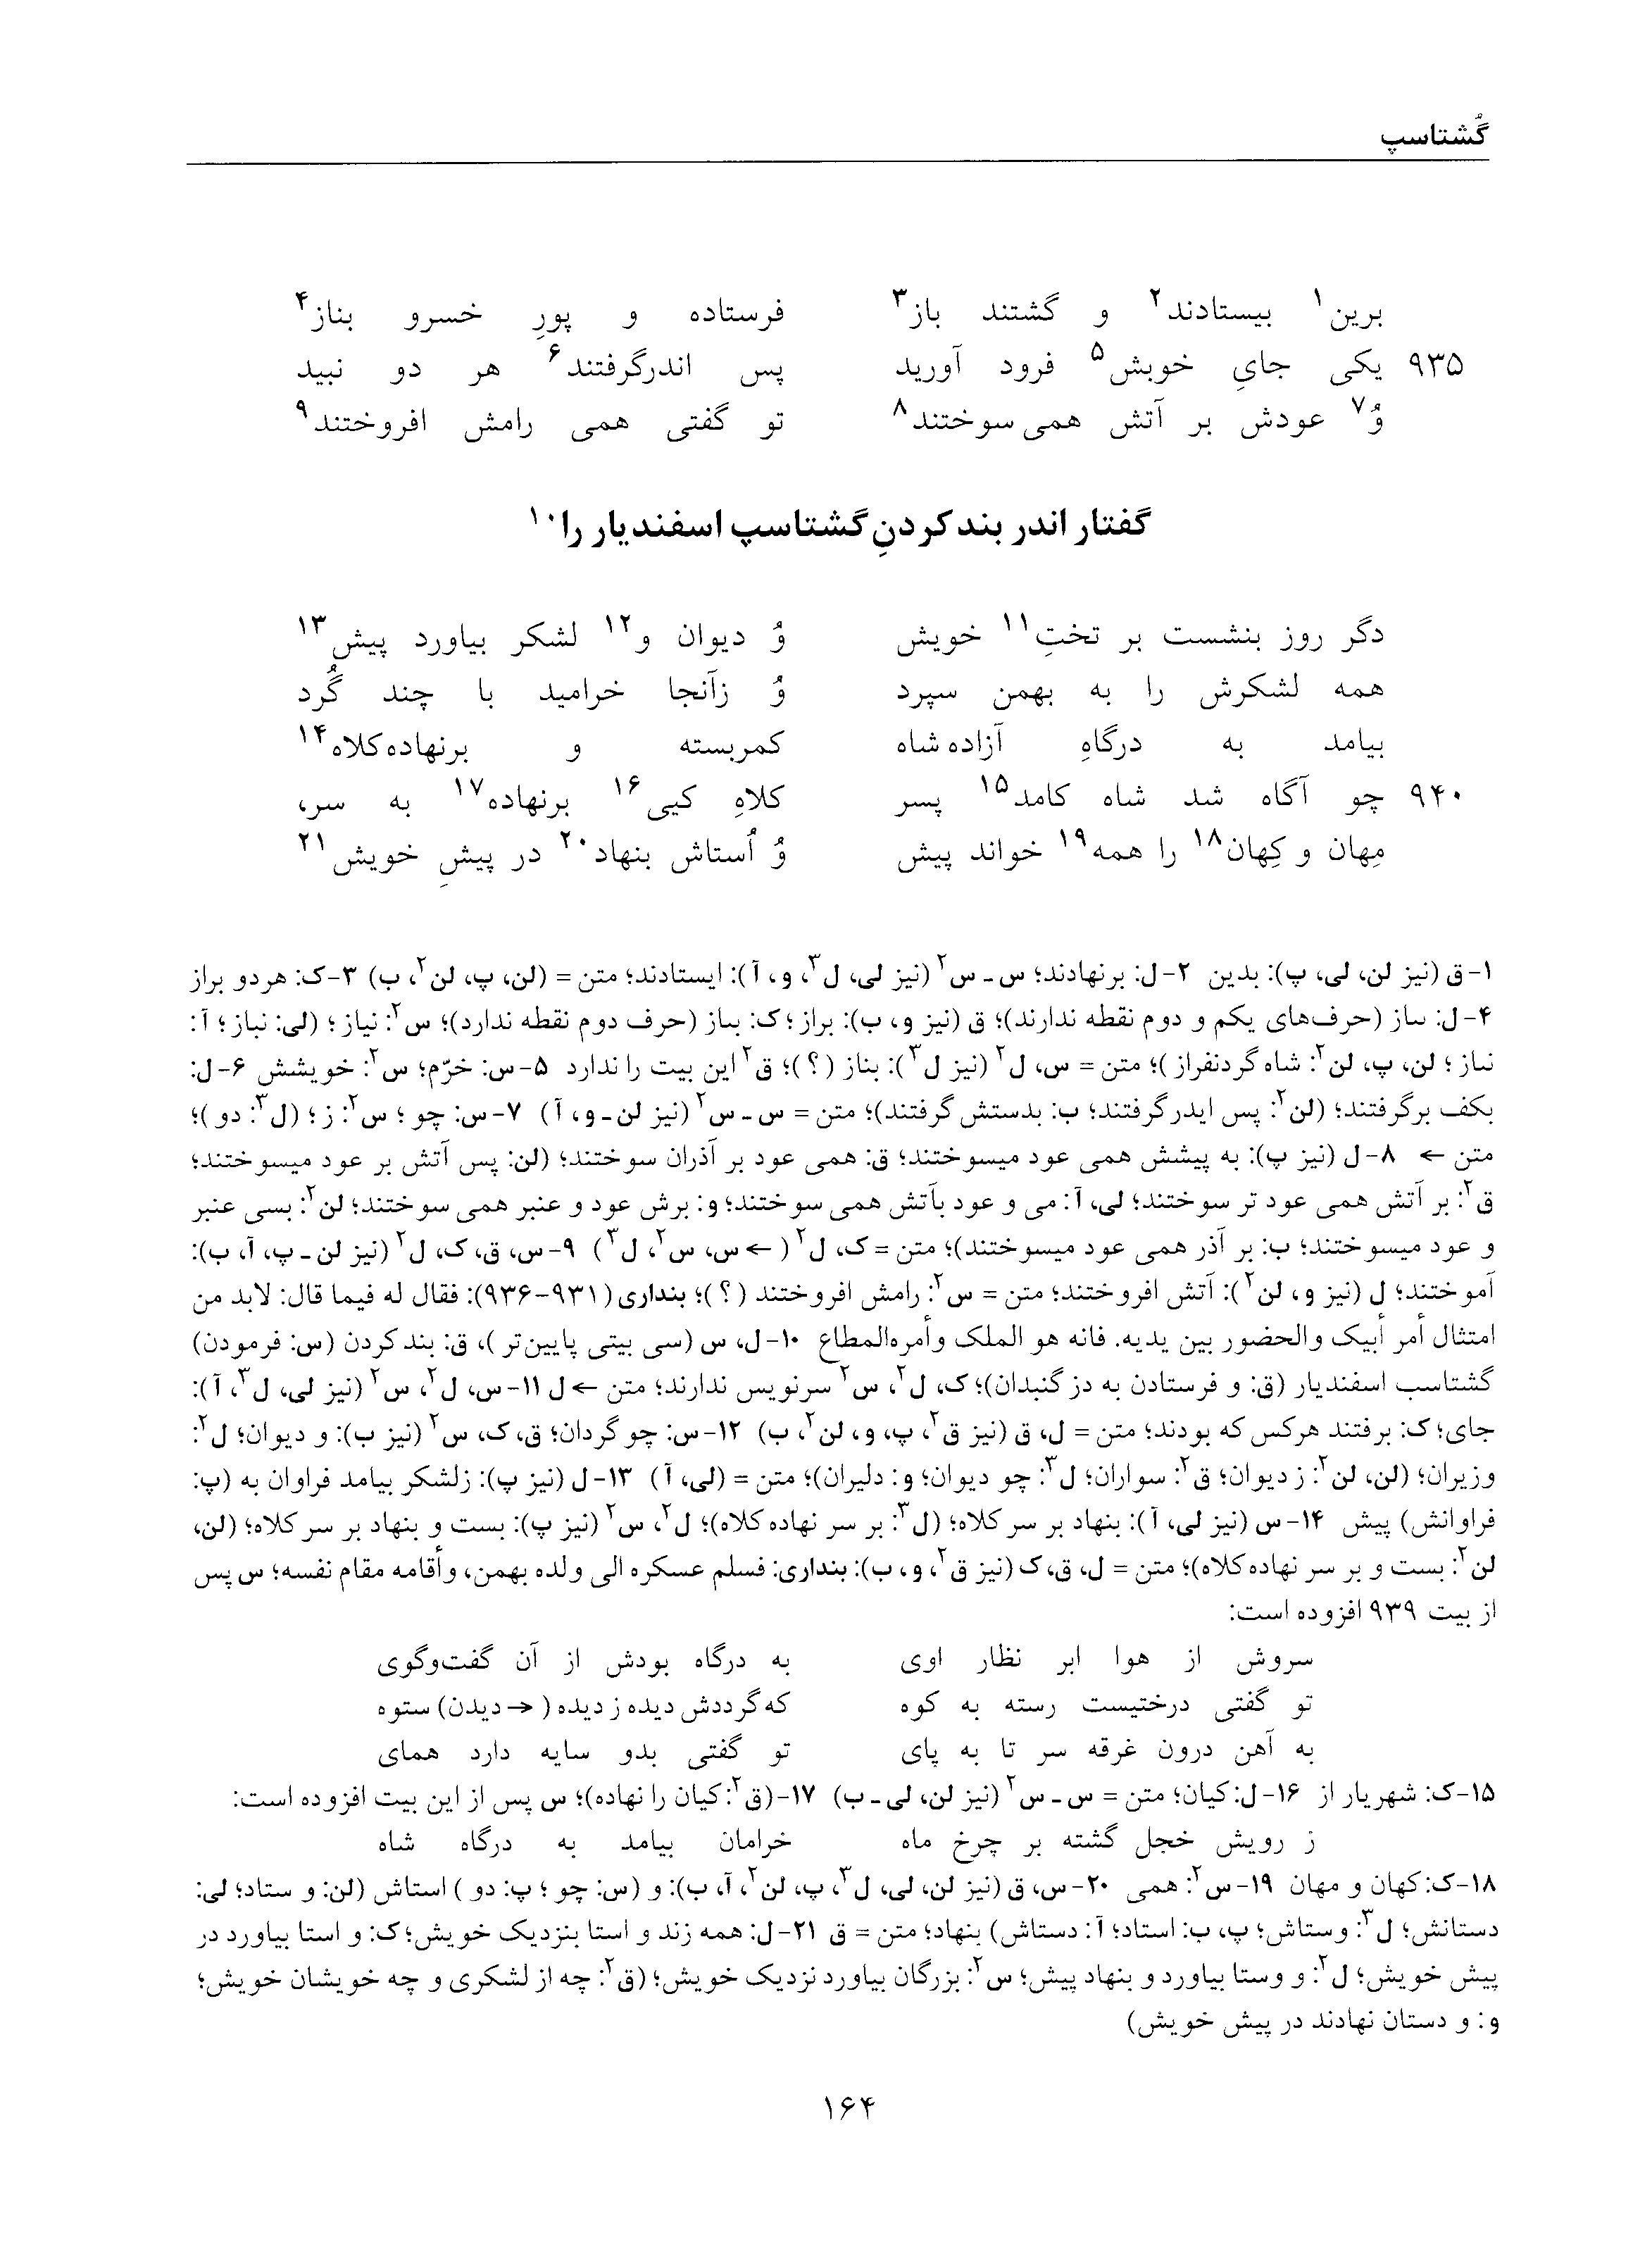 گُشتاسپ
برین۱ بیستادند۲ و گشتند باز۳ فرستاده و پورِ خسرو بناز۴
۹۳۵ یکی جایِ خوبش۵ فرود آورید پس اندرگرفتند۶ هر دو نبید
وُ۷ عودش بر آتش همی‌سوختند۸ تو گفتی همی رامش افروختند۹
گفتار اندر بند کردنِ گشتاسپ اسفندیار را۱۰
دگر روز بنشست بر تختِ۱۱ خویش وُ دیوان و۱۲ لشکر بیاورد پیش۱۳
همه لشکرش را به بهمن سپرد وُ زآنجا خرامید با چند گُرد
بیامد به درگاهِ آزاده شاه کمربسته و برنهاده کلاه۱۴
۹۴۰ چو آگاه شد شاه کامد۱۵ پسر کلاهِ کیی۱۶ برنهاده۱۷ به سر،
مِهان و کِهان۱۸ را همه۱۹ خواند پیش وُ اُستاش بنهاد۲۰ در پیشِ خویش۲۱
۱-ق (نیز لن، لی، پ): بدین ۲-ل: برنهادند؛ س ـ س۲ (نیز لی، ل۳، و، آ): ایستادند؛ متن = (لن، پ، لن۲، ب) ۳-ک: هردو براز
۴-ل: ىىاز (حرف‌های یکم و دوم نقطه ندارند)؛ ق (نیز و، ب): براز؛ ک: ىىاز (حرف دوم نقطه ندارد)؛ س۲: نیاز؛ (لی: نباز؛ آ:
نىاز؛ لن، پ، لن۲: شاه گردنفراز)؛ متن = س، ل۲ (نیز ل۳): بناز (؟)؛ ق۲ این بیت را ندارد ۵-س: خرّم؛ س۲: خویشش ۶-ل:
بکف برگرفتند؛ (لن۲: پس ایدرگرفتند؛ ب: بدستش گرفتند)؛ متن = س ـ س۲ (نیز لن ـ و، آ) ۷-س: چو؛ س۲: ز؛ (ل۳: دو)؛
متن ← ۸-ل (نیز پ): به پیشش همی عود میسوختند؛ ق: همی عود بر آذران سوختند؛ (لن: پس آتش بر عود میسوختند؛
ق۲: بر آتش همی عود تر سوختند؛ لی، آ: می و عود بآتش همی سوختند؛ و: برش عود و عنبر همی سوختند؛ لن۲: بسی عنبر
و عود میسوختند؛ ب: بر آذر همی عود میسوختند)؛ متن = ک، ل۲ (← س، س۲، ل۳) ۹-س، ق، ک، ل۲ (نیز لن ـ پ، آ، ب):
آموختند؛ ل (نیز و، لن۲): آتش افروختند؛ متن = س۲: رامش افروختند (؟)؛ بنداری (۹۳۱-۹۳۶): فقال له فیما قال: لابد من
امتثال أمر أبیک والحضور بین یدیه. فانه هو الملک وأمره‌المطاع ۱۰-ل، س (سی بیتی پایین‌تر)، ق: بند کردن (س: فرمودن)
گشتاسب اسفندیار (ق: و فرستادن به دز گنبدان)؛ ک، ل۲، س۲ سرنویس ندارند؛ متن ← ل ۱۱-س، ل۲، س۲ (نیز لی، ل۳، آ):
جای؛ ک: برفتند هرکس که بودند؛ متن = ل، ق (نیز ق۲، پ، و، لن۲، ب) ۱۲-س: چو گردان؛ ق، ک، س۲ (نیز ب): و دیوان؛ ل۲:
وزیران؛ (لن، لن۲: ز دیوان؛ ق۲: سواران؛ ل۳: چو دیوان؛ و: دلیران)؛ متن = (لی، آ) ۱۳-ل (نیز پ): زلشکر بیامد فراوان به (پ:
فراوانش) پیش ۱۴-س (نیز لی، آ): بنهاد بر سر کلاه؛ (ل۳: بر سر نهاده کلاه)؛ ل۲، س۲ (نیز پ): بست و بنهاد بر سر کلاه؛ (لن،
لن۲: بست و بر سر نهاده کلاه)؛ متن = ل، ق، ک (نیز ق۲، و، ب): بنداری: فسلم عسکره الی ولده بهمن، وأقامه مقام نفسه؛ س پس
از بیت ۹۳۹ افزوده است:
سروش از هوا ابر نظار اوی به درگاه بودش از آن گفت‌وگوی
تو گفتی درختیست رسته به کوه که گرددش دیده ز دیده (→ دیدن) ستوه
به آهن درون غرقه سر تا به پای تو گفتی بدو سایه دارد همای
۱۵-ک: شهریار از ۱۶-ل: کیان؛ متن = س ـ س۲ (نیز لن، لی ـ ب) ۱۷-(ق۲: کیان را نهاده)؛ س پس از این بیت افزوده است:
ز رویش خجل گشته بر چرخ ماه خرامان بیامد به درگاه شاه
۱۸-ک: کهان و مهان ۱۹-س۲: همی ۲۰-س، ق (نیز لن، لی، ل۳، پ، لن۲، آ، ب): و (س: چو؛ پ: دو) استاش (لن: و ستاد؛ لی:
دستانش؛ ل۳: وستاش؛ پ، ب: استاد؛ آ: دستاش) بنهاد؛ متن = ق ۲۱-ل: همه زند و استا بنزدیک خویش؛ ک: و استا بیاورد در
پیش خویش؛ ل۲: و وستا بیاورد و بنهاد پیش؛ س۲: بزرگان بیاورد نزدیک خویش؛ (ق۲: چه از لشکری و چه خویشان خویش؛
و: و دستان نهادند در پیش خویش)
۱۶۴